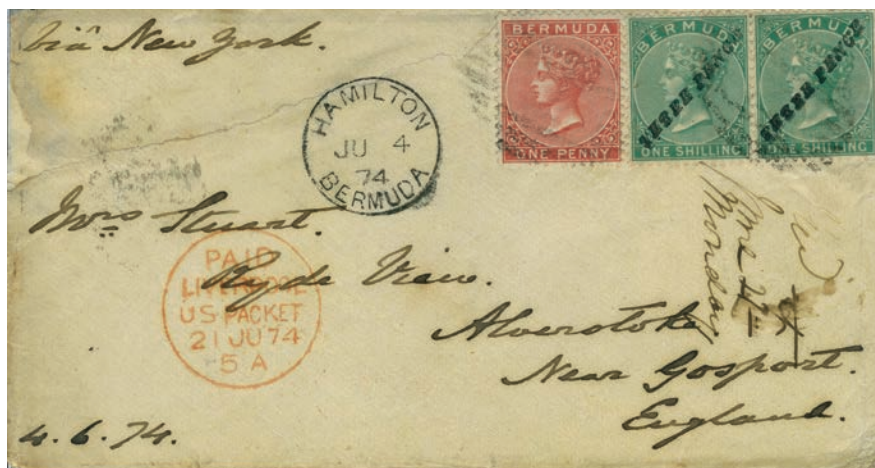 viâ New York.
BERMUDA
ONE PENNY
BERMUDA
THREE PENCE
ONE SHILLING
BERMUDA
THREE PENCE
ONE SHILLING
HAMILTON
JU 4
74
BERMUDA
Mrs Stuart.
Ryde View.
Alverstoke
Near Gosport.
England.
PAID
LIVERPOOL
US PACKET
21 JU 74
5 A
June 22nd
Monday
4.6.74.